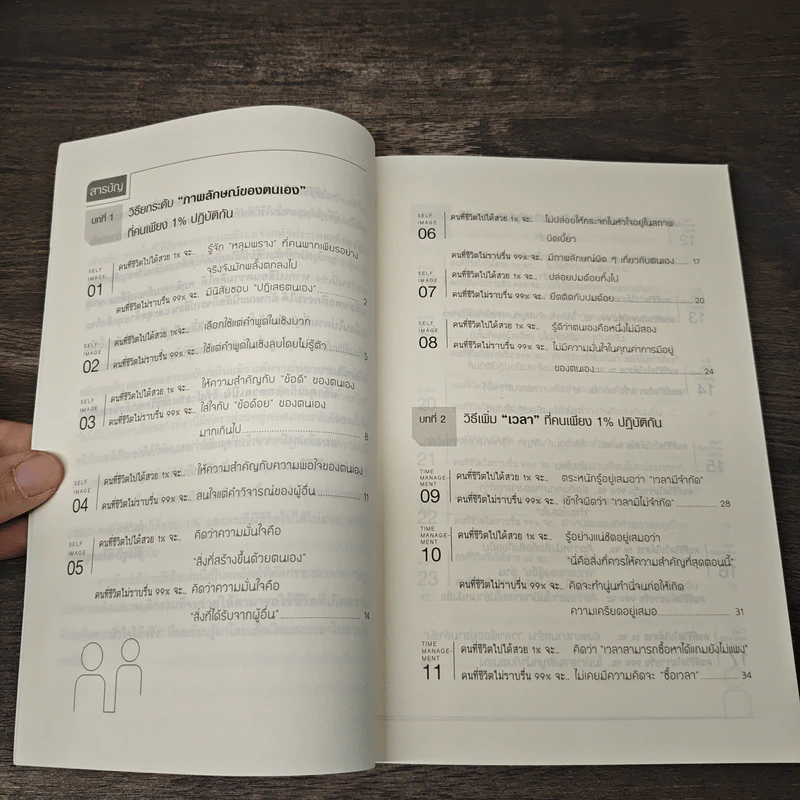 สารบัญ
บทที่ 1
วิธียกระดับ “ภาพลักษณ์ของตนเอง”
ที่คนเพียง 1% ปฏิบัติกัน
SELF
IMAGE
01
คนที่ชีวิตไปได้สวย 1% จะ.. รู้จัก “หลุมพราง” ที่คนพากเพียรอย่าง
จริงจังมักพลั้งตกลงไป
คนที่ชีวิตไม่ราบรื่น 99% จะ.. มีนิสัยชอบ “ปฏิเสธตนเอง” 2
SELF
IMAGE
02
คนที่ชีวิตไปได้สวย 1% จะ.. เลือกใช้แต่คำพูดในเชิงบวก
คนที่ชีวิตไม่ราบรื่น 99% จะ.. ใช้แต่คำพูดในเชิงลบโดยไม่รู้ตัว 5
SELF
IMAGE
03
คนที่ชีวิตไปได้สวย 1% จะ.. ให้ความสำคัญกับ “ข้อดี” ของตนเอง
คนที่ชีวิตไม่ราบรื่น 99% จะ.. ใส่ใจกับ “ข้อด้อย” ของตนเอง
มากเกินไป 8
SELF
IMAGE
04
คนที่ชีวิตไปได้สวย 1% จะ.. ให้ความสำคัญกับความพอใจของตนเอง
คนที่ชีวิตไม่ราบรื่น 99% จะ.. สนใจแต่คำวิจารณ์ของผู้อื่น 11
SELF
IMAGE
05
คนที่ชีวิตไปได้สวย 1% จะ.. คิดว่าความมั่นใจคือ
“สิ่งที่สร้างขึ้นด้วยตนเอง”
คนที่ชีวิตไม่ราบรื่น 99% จะ.. คิดว่าความมั่นใจคือ
“สิ่งที่ได้รับจากผู้อื่น” 14
SELF
IMAGE
06
คนที่ชีวิตไปได้สวย 1% จะ.. ไม่ปล่อยให้กระจกในหัวใจอยู่ในสภาพ
บิดเบี้ยว
คนที่ชีวิตไม่ราบรื่น 99% จะ.. มีภาพลักษณ์ผิด ๆ เกี่ยวกับตนเอง 17
SELF
IMAGE
07
คนที่ชีวิตไปได้สวย 1% จะ.. ปล่อยปมด้อยทิ้งไป
คนที่ชีวิตไม่ราบรื่น 99% จะ.. ยึดติดกับปมด้อย 20
SELF
IMAGE
08
คนที่ชีวิตไปได้สวย 1% จะ.. รู้ดีว่าตนเองคือหนึ่งไม่มีสอง
คนที่ชีวิตไม่ราบรื่น 99% จะ.. ไม่มีความมั่นใจในคุณค่าการมีอยู่
ของตนเอง 24
บทที่ 2 วิธีเพิ่ม “เวลา” ที่คนเพียง 1% ปฏิบัติกัน
TIME
MANAGE-
MENT
09
คนที่ชีวิตไปได้สวย 1% จะ.. ตระหนักรู้อยู่เสมอว่า “เวลามีจำกัด”
คนที่ชีวิตไม่ราบรื่น 99% จะ.. เข้าใจผิดว่า “เวลามีไม่จำกัด” 28
TIME
MANAGE-
MENT
10
คนที่ชีวิตไปได้สวย 1% จะ.. รู้อย่างแน่ชัดอยู่เสมอว่า
“นี่คือสิ่งที่ควรให้ความสำคัญที่สุดตอนนี้”
คนที่ชีวิตไม่ราบรื่น 99% จะ.. คิดจะทำนู่นทำนี่จนก่อให้เกิด
ความเครียดอยู่เสมอ 31
TIME
MANAGE-
MENT
11
คนที่ชีวิตไปได้สวย 1% จะ.. คิดว่า “เวลาสามารถซื้อหาได้แถมยังไม่แพง”
คนที่ชีวิตไม่ราบรื่น 99% จะ.. ไม่เคยมีความคิดจะ “ซื้อเวลา” 34